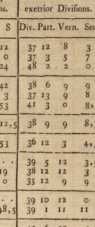 exetrior Divisions.
S Div. Part. Vern. Sec
12 37 12 8 3
0 37 3 5 7
24 48 2 2 0.
42 38 6 9 9
3 37 13 9 8
53 41 3 0 8.
12,5 38 9 9 8,
53 36 12 3 4,
39 5 12 3.
19 38 10 12 12
0 35 12 9 9
39 10 12 0
38,5 39 1 11 11